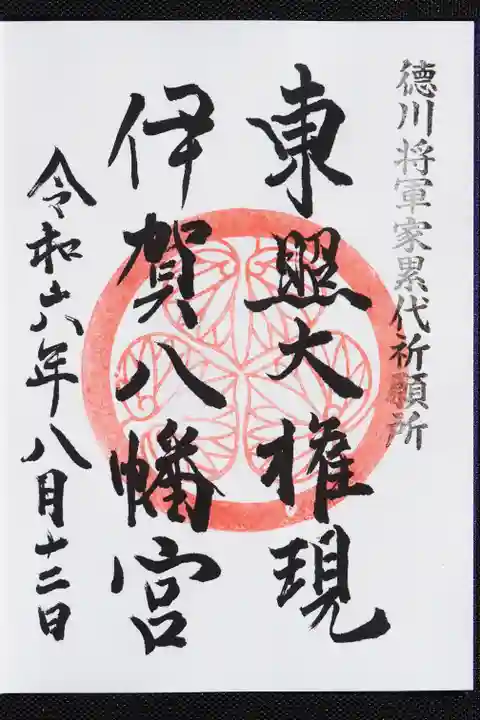 徳川将軍家累代祈願所
東照大権現
伊賀八幡宮
令和六年八月十二日